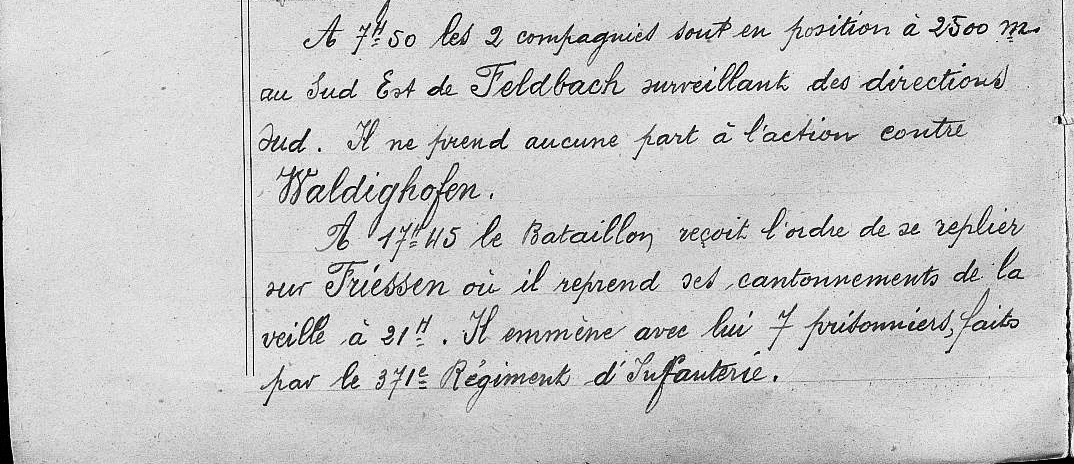 A 7ᴴ50 les 2 compagnies sont en position à 2500 m.
au Sud Est de Feldbach surveillant des directions
Sud. Il ne prend aucune part à l'action contre
Waldighofen.
A 17ᴴ45 le Bataillon reçoit l'ordre de se replier
sur Friéssen où il reprend ses cantonnements de la
veille à 21ᴴ. Il emmène avec lui 7 prisonniers, faits
par le 371e Régiment d'Infanterie.